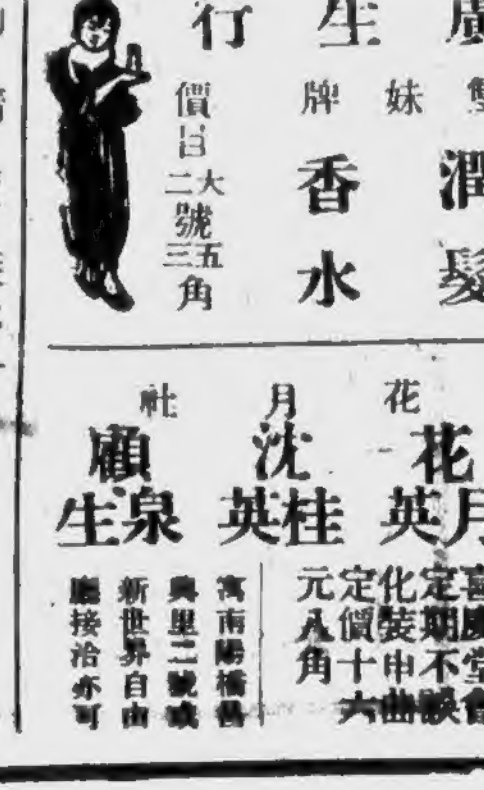 廣生行
雙妹牌
潤髮
香水
價目
大二號
五三角
花月社
花月英
沈桂英
顧泉生
喜慶堂會
定期不誤
化裝申曲
定價十六
元八角
寓南陽橋
興里二號或
新世界自由
廳接洽亦可